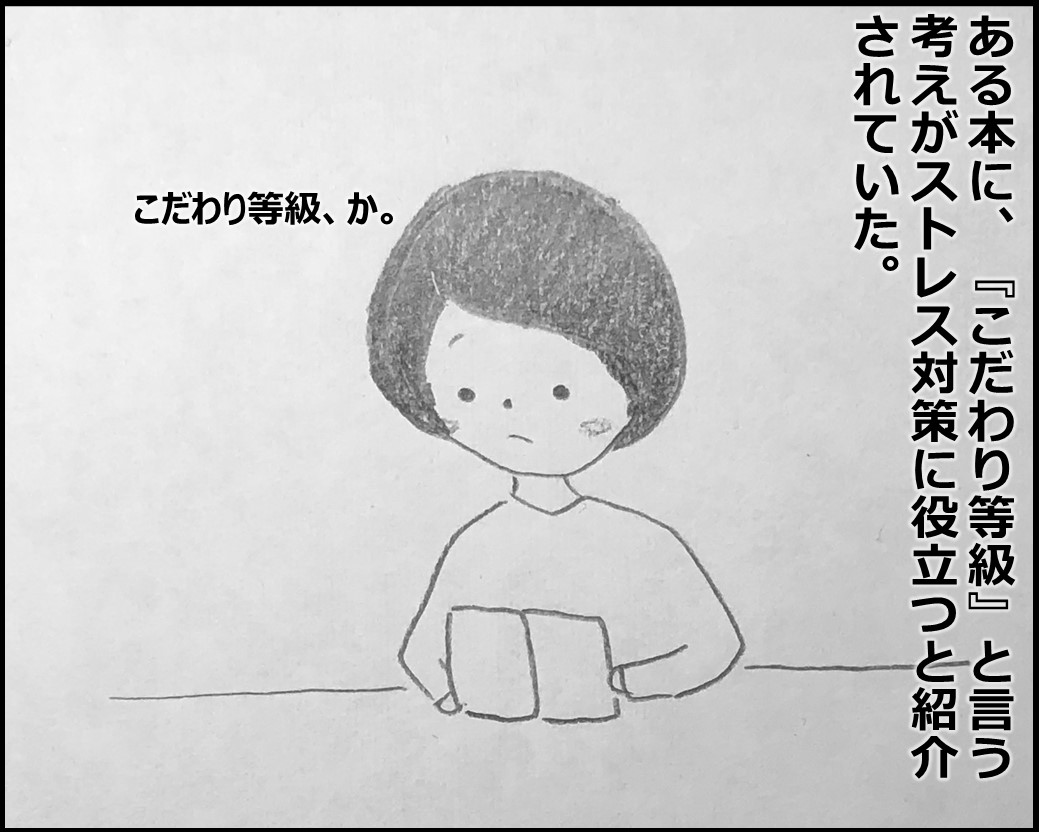 ある本に、『こだわり等級』と言う
考えがストレス対策に役立つと紹介
されていた。
こだわり等級、か。